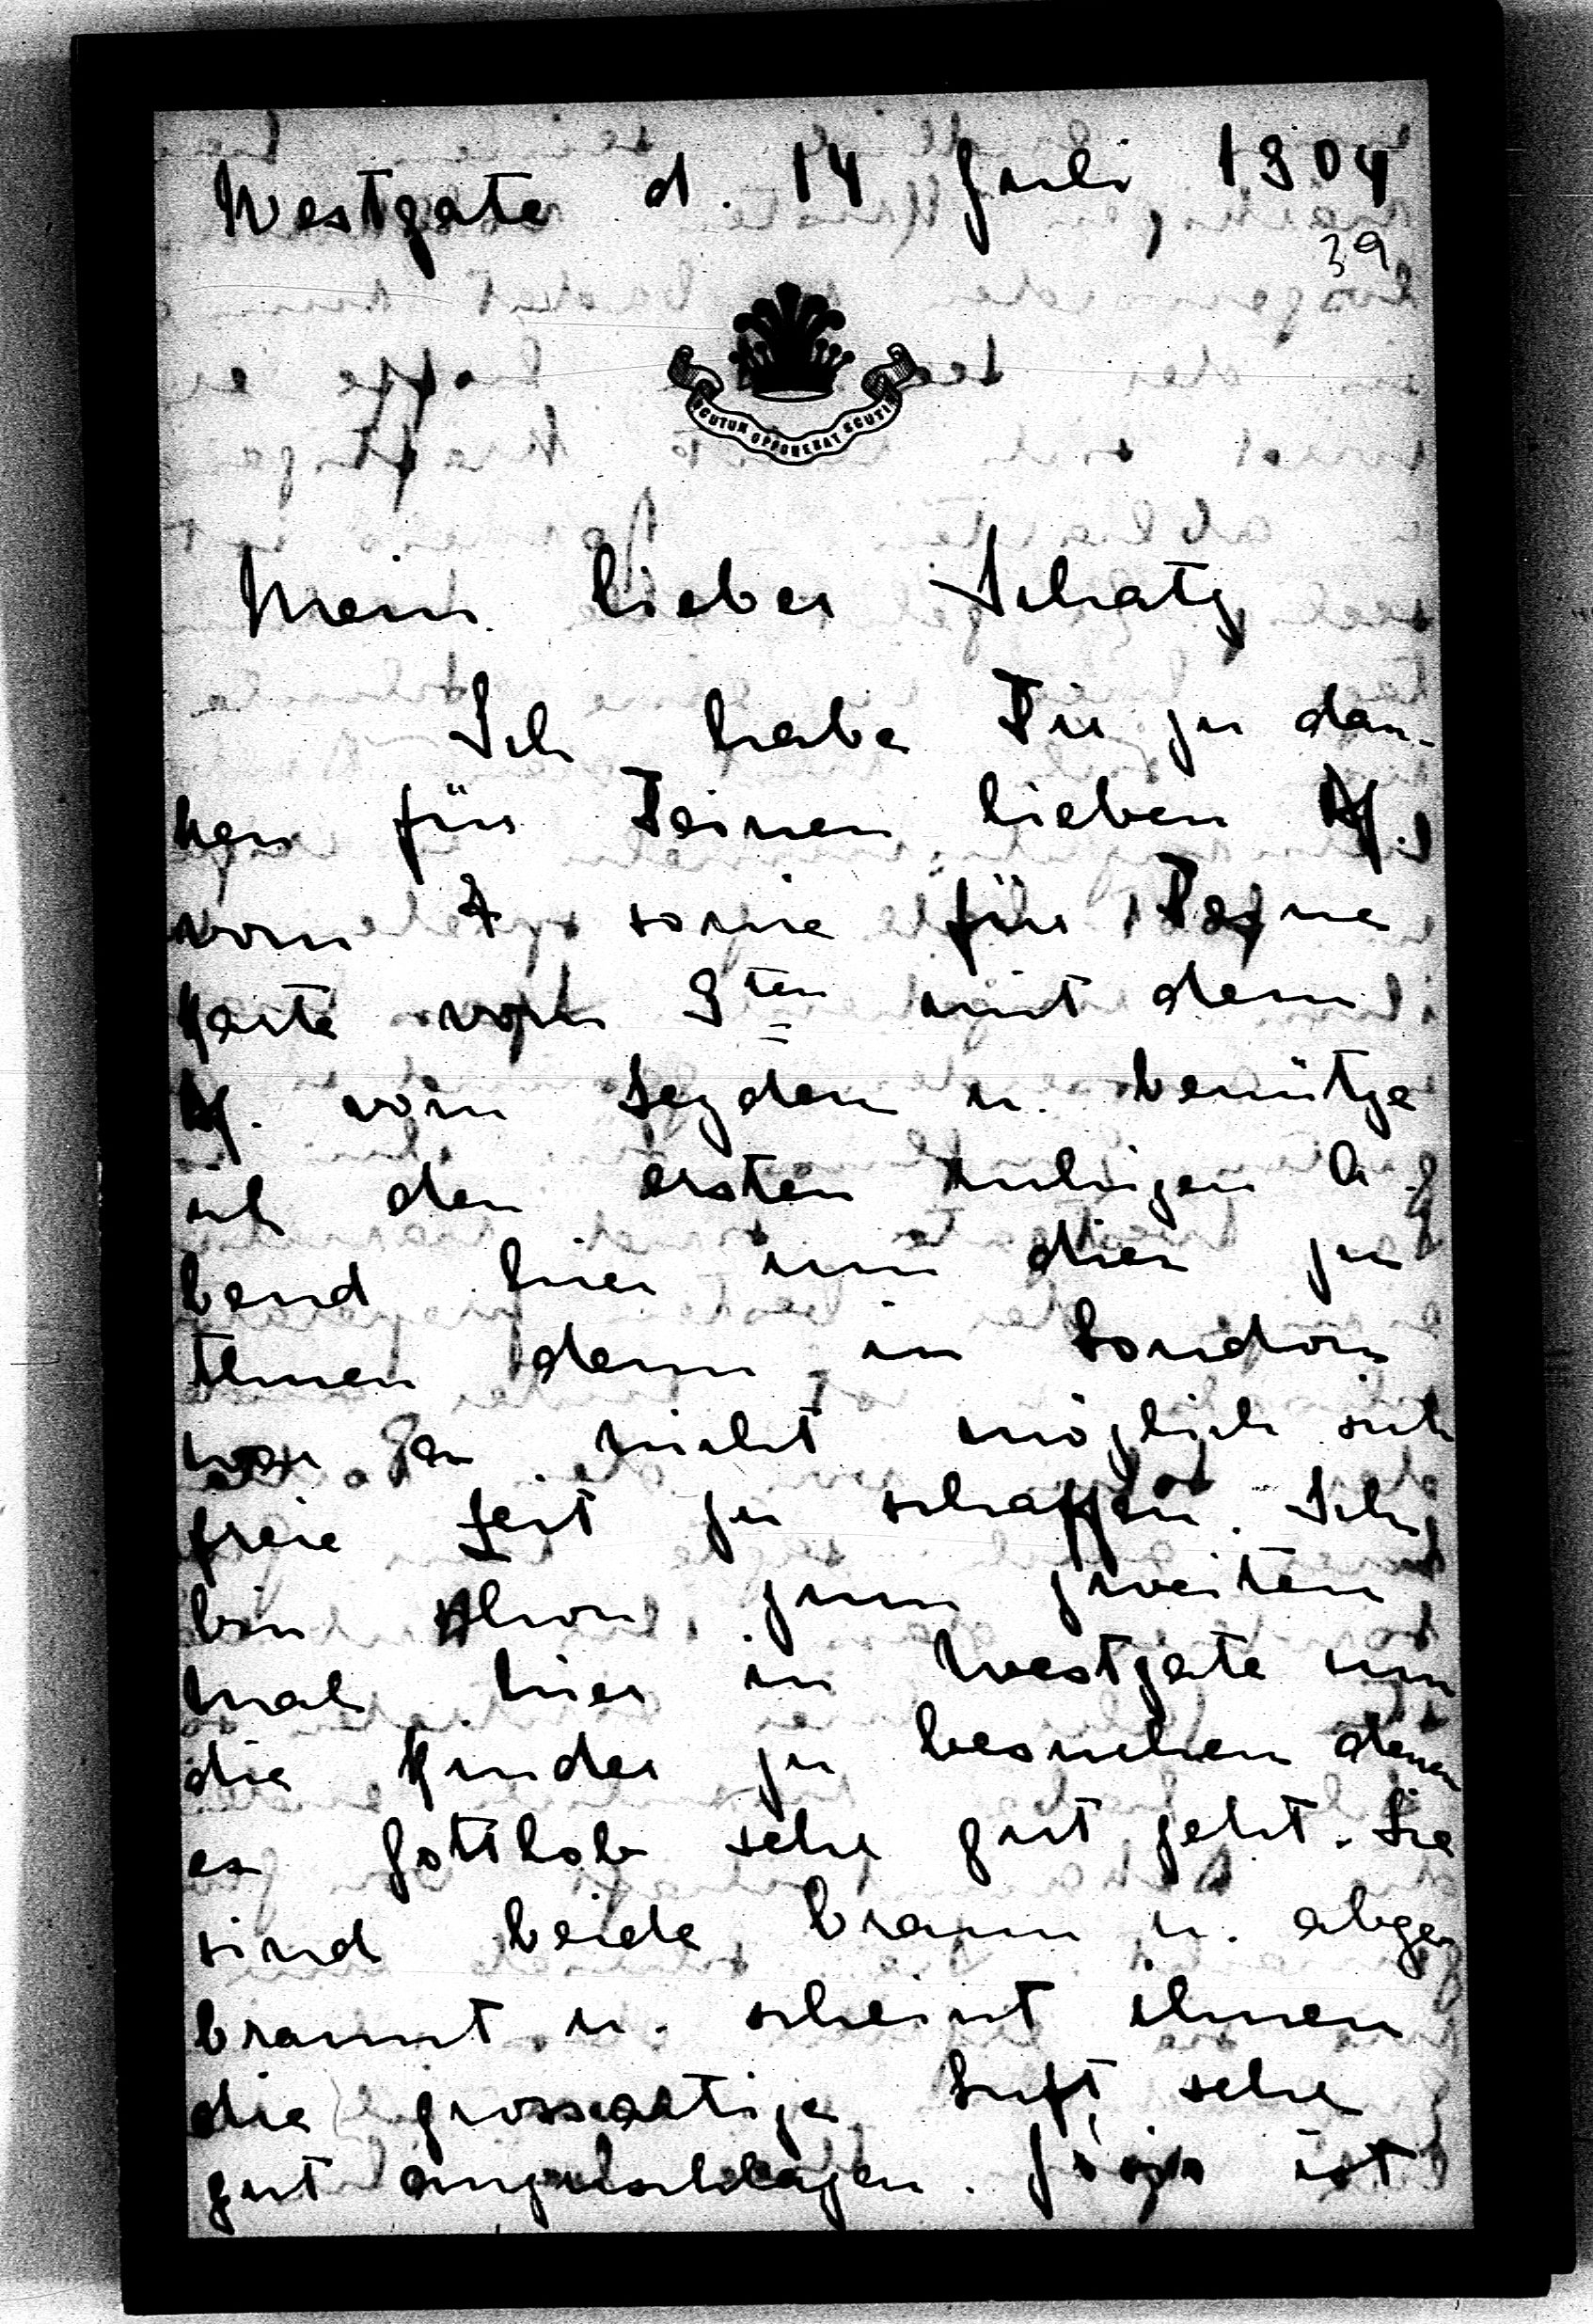 Westgate d. 14 Juli 1904
39
SCUTUM OPPONEBAT SCUTIS
Mein lieber Schatz
Ich habe Dir zu dan-
ken für Deinen lieben Bf.
vom 7 sowie für Deine
Karte vom 9ten mit dem
Bf. vom u. benütze
ich den ersten ruhigen A-
bend hier um dies zu
thuen denn in London
war ja nicht möglich sich
freie Zeit zu schaffen. Ich
bin schon zum zweiten
Mal hier in Westgate um
die Kinder zu besuchen denen
es gottlob sehr gut geht. Sie
sind beide braun u. abge-
brannt u. scheint ihnen
die grossartige Luft sehr
gut anzuschlagen. ist